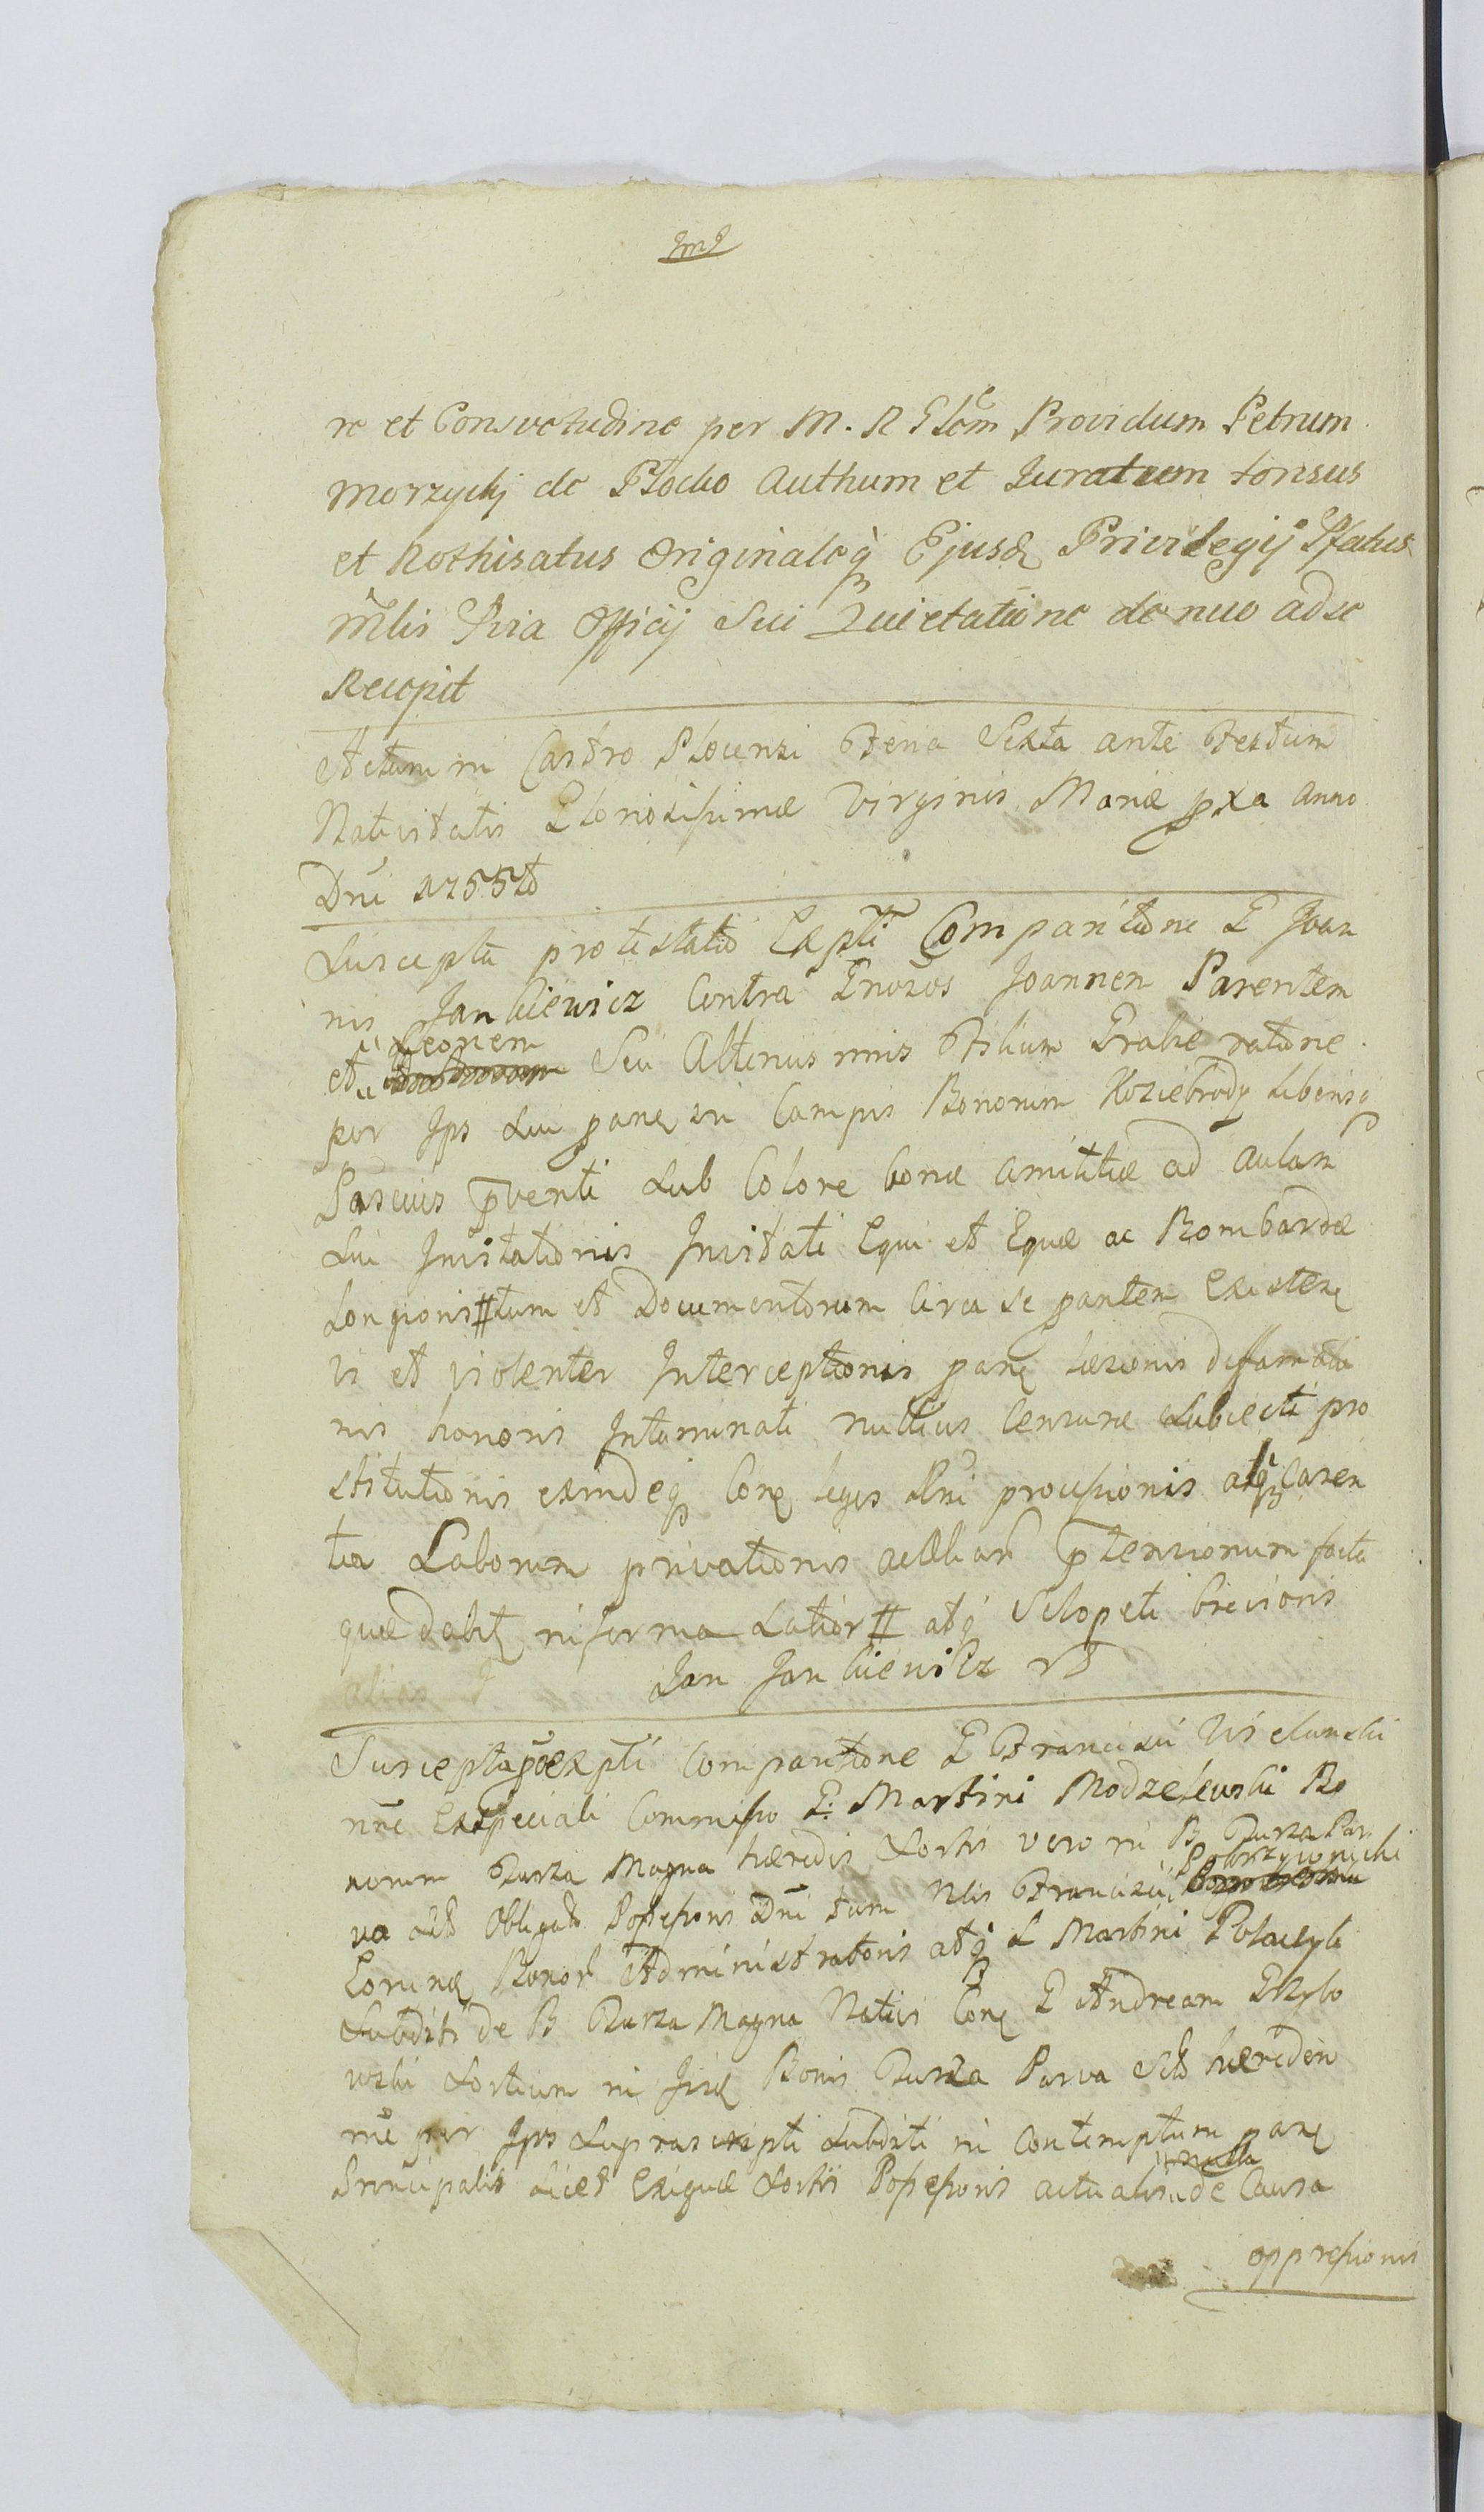 JmJ
re et Consvetudine per M. R Glem Providum Petrum
Morzycky de Plocko Authum et Juratum tonsus
et Rothisatus Originaleq Ejusd Privilegij Pfatus
Mlis Pvia Officij Sui Quietatione de nuo ad se
Recepit
Actum in Castro Plocensi Feria Sexta ante Festum
Nativitatis Gloriosissimæ Virginis Mariæ pxa Anno
Dni 1755to
Suscepta protestatio Expti Comparitione G Joan
nis Jankiewicz Contra Gnosos Joannem Parentem
et Leonem Seu Alterius nnis Filium Grabie ratione
per Ips Sui panz in Campis Bonorum Koziebrody Liberisq
Pascuis pventi Sub Colore bonæ amicitiæ ad aulam
Sui Invitationis Invitati Equi et Equæ ac Bombardæ
Longioris # tum et Documentorum circa se pantem Existenz
vi et violenter Interceptionis panz læsionis deffamatio
nis honoris Intaminati nullius Censuræ Subiecti pro
stitutionis eximdeq Conz leges Rni processionis atq Caren
tia Laborum privationis aliar ptensionum facta
quæ dabit in forma Latiori # atq Sclopeti brevioris
alias
Jan Jankiewicz
Suscepta p expti Comparitione G Francisci Wielunski
nne Ex Speciali Commisso G. Martini Modzelewski Bo
norum Gurza Magna hæredis Sortis vero in B Gurza Par
va Obligato Possessoris Dni tum Nlis Francisci Dobrzywonicki
Eorundz Bonor Administratoris atq L Martini
Subditi de B Gurza Magna Nativi Conz G Andream Grzybo
wski Sortium in Jisdz Bonis Gurza Parva hæredem
per Ips Suprascripti Subditi in Contemptum panz
Principalis Licet Exiguæ Sortis Possessoris actualis nulla de Causa
oppressionis